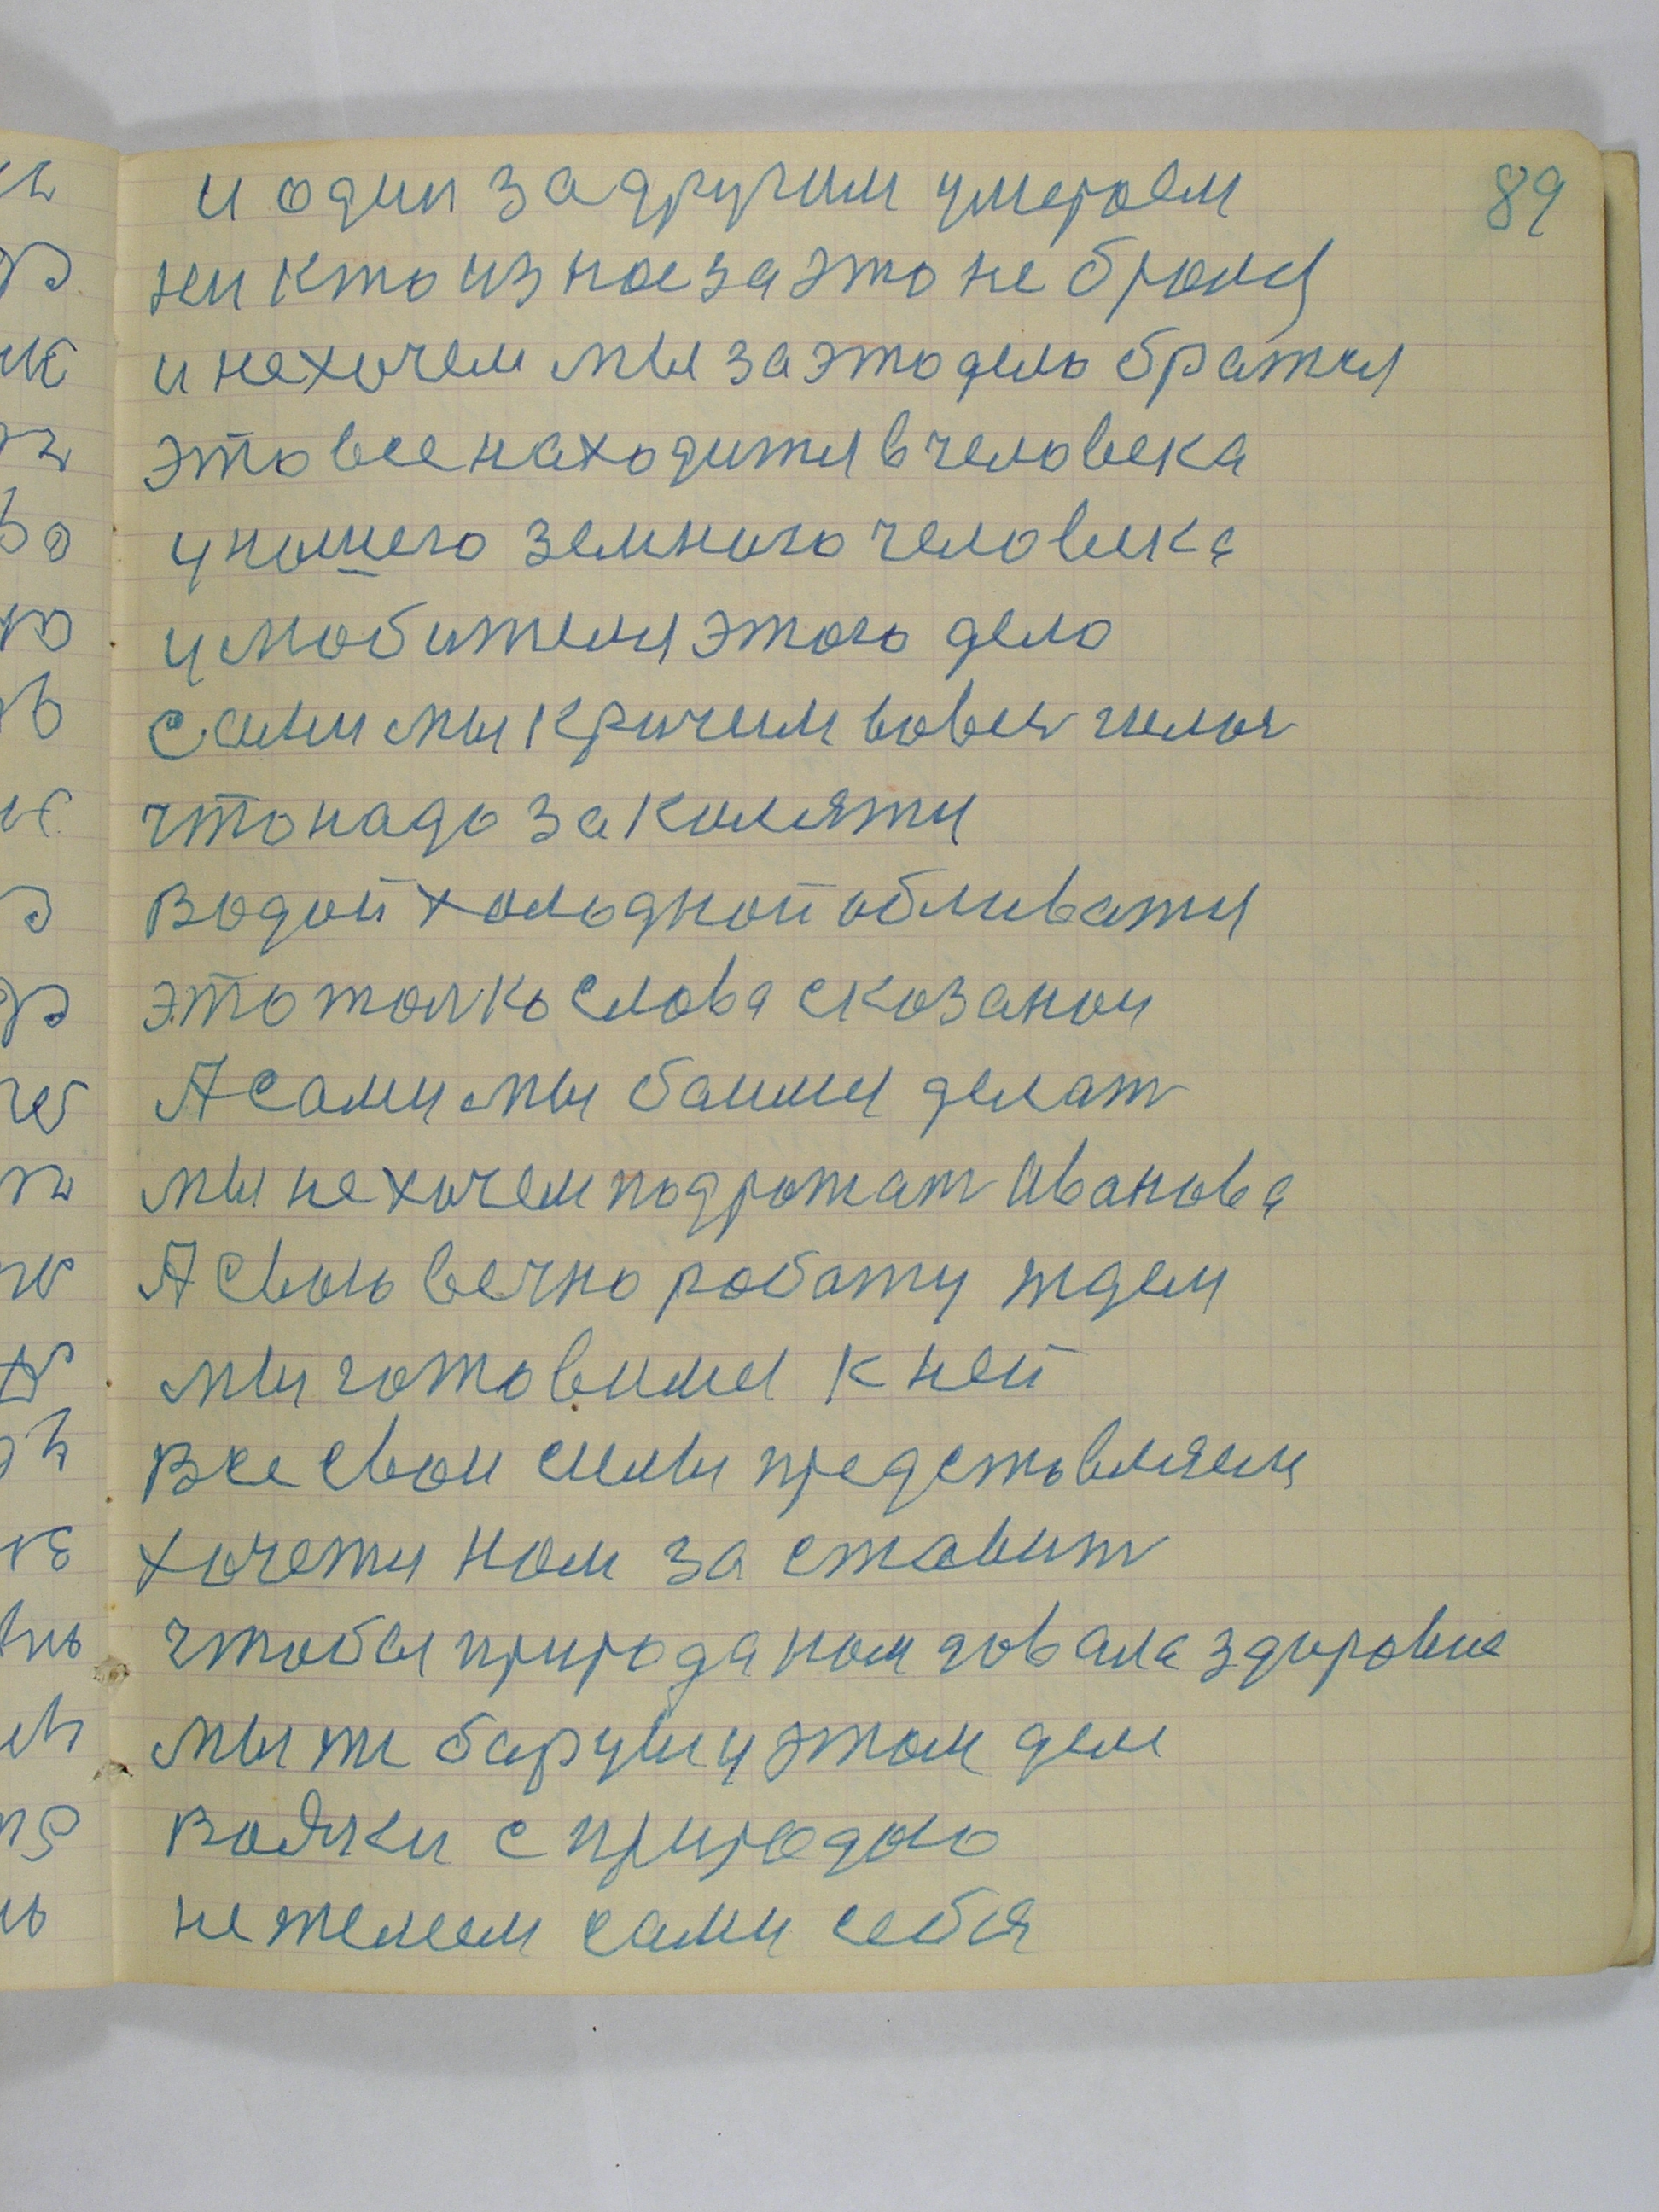 89
и один за другим умераем
ни кто из нас за это не бролся
и не хочем мы за это дело братся
это все находится в человека
у нашего земного человека
у любителя этого дело
сами мы кричим во весь голос
что надо закалятся
водой холодной обливатся
это толко слова сказанои
А сами мы боимся делат
мы не хочем подрожат Иванова
А свою вечно работу ждем
мы готовимся к ней
все свои силы предстовляем
хочется нам заставит
чтобы природа нам довала здоровие
мы же баримся у этом деле
вояки с природою
не жалеем сами себя